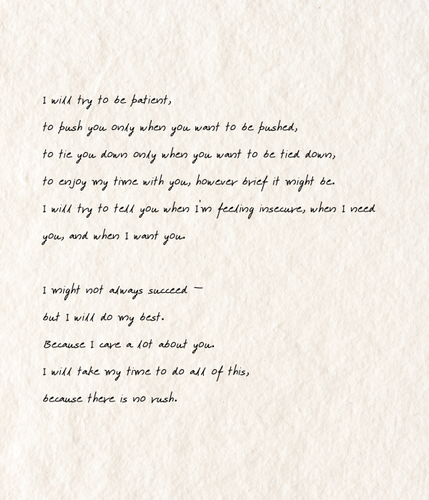 I will try to be patient,
to push you only when you want to be pushed,
to tie you down only when you want to be tied down,
to enjoy my time with you, however brief it might be.
I will try to tell you when I'm feeling insecure, when I need
you, and when I want you.

I might not always succeed —
but I will do my best.
Because I care a lot about you.
I will take my time to do all of this,
because there is no rush.